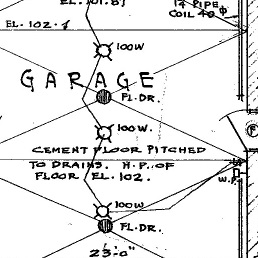 EL. 101.8½
14 PIPE
COIL 40
EL. 102.
100W
GARAGE
FL. DR.
100W.
CEMENT FLOOR PITCHED
TO DRAINS. H.P. OF
FLOOR EL. 102.
W.P.
100W
FL. DR.
23'-0"
F